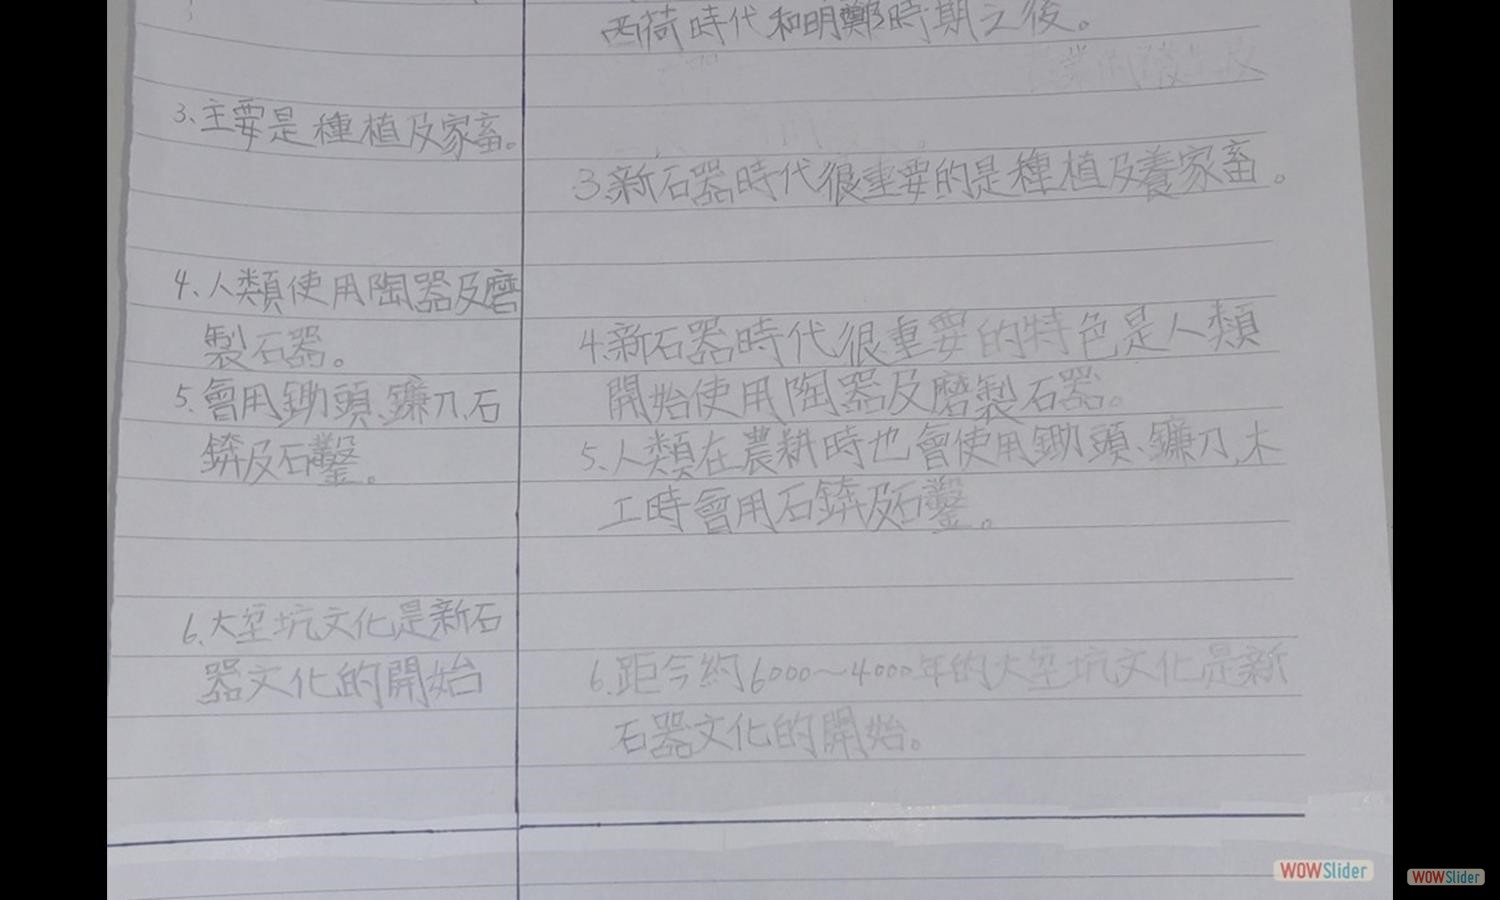 西荷時代和明鄭時期之後。
3、主要是種植及家畜。
3.新石器時代很重要的是種植及養家畜。
4、人類使用陶器及磨
製石器。
5、會用鋤頭、鐮刀、石
錛及石鑿。
4.新石器時代很重要的特色是人類
開始使用陶器及磨製石器。
5、人類在農耕時也會使用鋤頭、鐮刀,木
工時會用石錛及石鑿。
6、大坌坑文化是新石
器文化的開始
6.距今約6000～4000年的大坌坑文化是新
石器文化的開始。
WOWSlider
WOWSlider